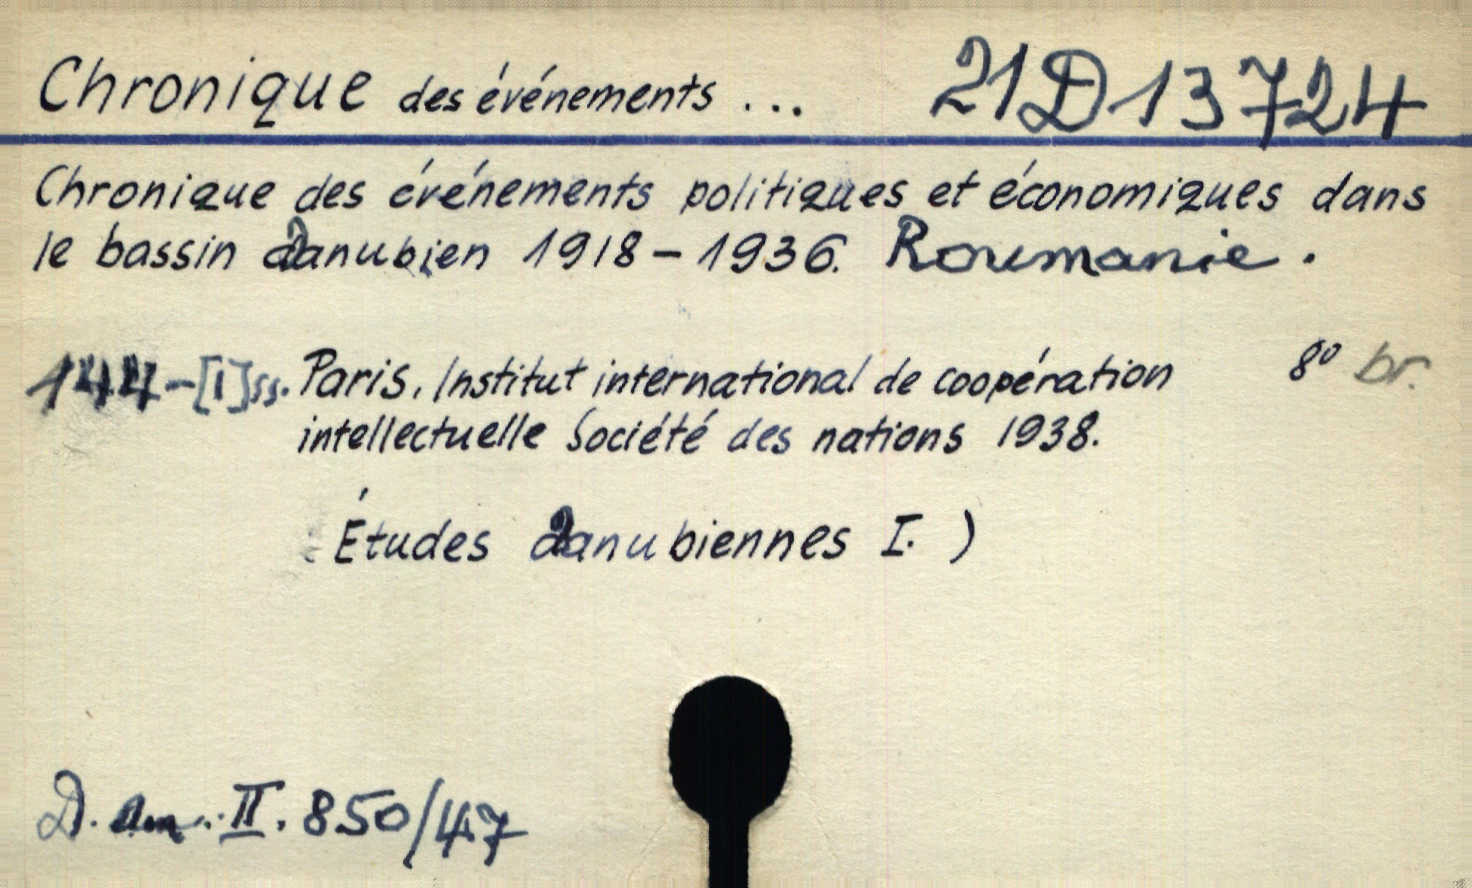 Chronique des événements ... 21D13724
Chronique des événements politiques et économiques dans
le bassin danubien 1918-1936. Roumanie.
144-[1]ss. Paris, Institut international de coopération 8° br.
intellectuelle Société des nations 1938.
Études danubiennes I. )
D. II. 850/47